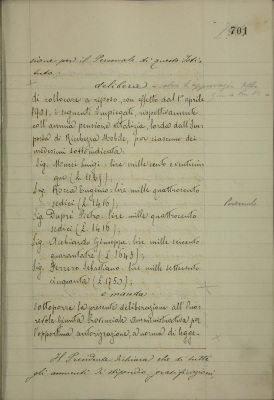 701
sione per il Personale di questo Isti-
tuto;
delibera
di collocare a riposo, con effetto dal 1° aprile
1901, i seguenti Impiegati, rispettivamente
coll'annua pensione vitalizia, lorda dall'Im-
posta di Ricchezza Mobile, per ciascuno dei
medesimi sottoindicata:
Sig. Luigi: lire mille cento e ventuna
que
Sig. Rocca Eugenio: lire mille quattrocento
sedici (L. 1416);
Sig. Dupré Pietro: lire mille quattrocento
sedici (L. 1416);
Sig. Giuseppe: lire mille seicento
quarantatre (L. 1643);
Sig. Ferrero Sebastiano: lire mille settecento
cinquanta (L. 1750);
e manda
sottoporre la presente deliberazione all'Ono-
revole Giunta Provinciale Amministrativa per
l'opportuna autorizzazione, a norma di legge.
Il Presidente dichiara che di tutti
gli aumenti di stipendio, gratificazioni
Personale